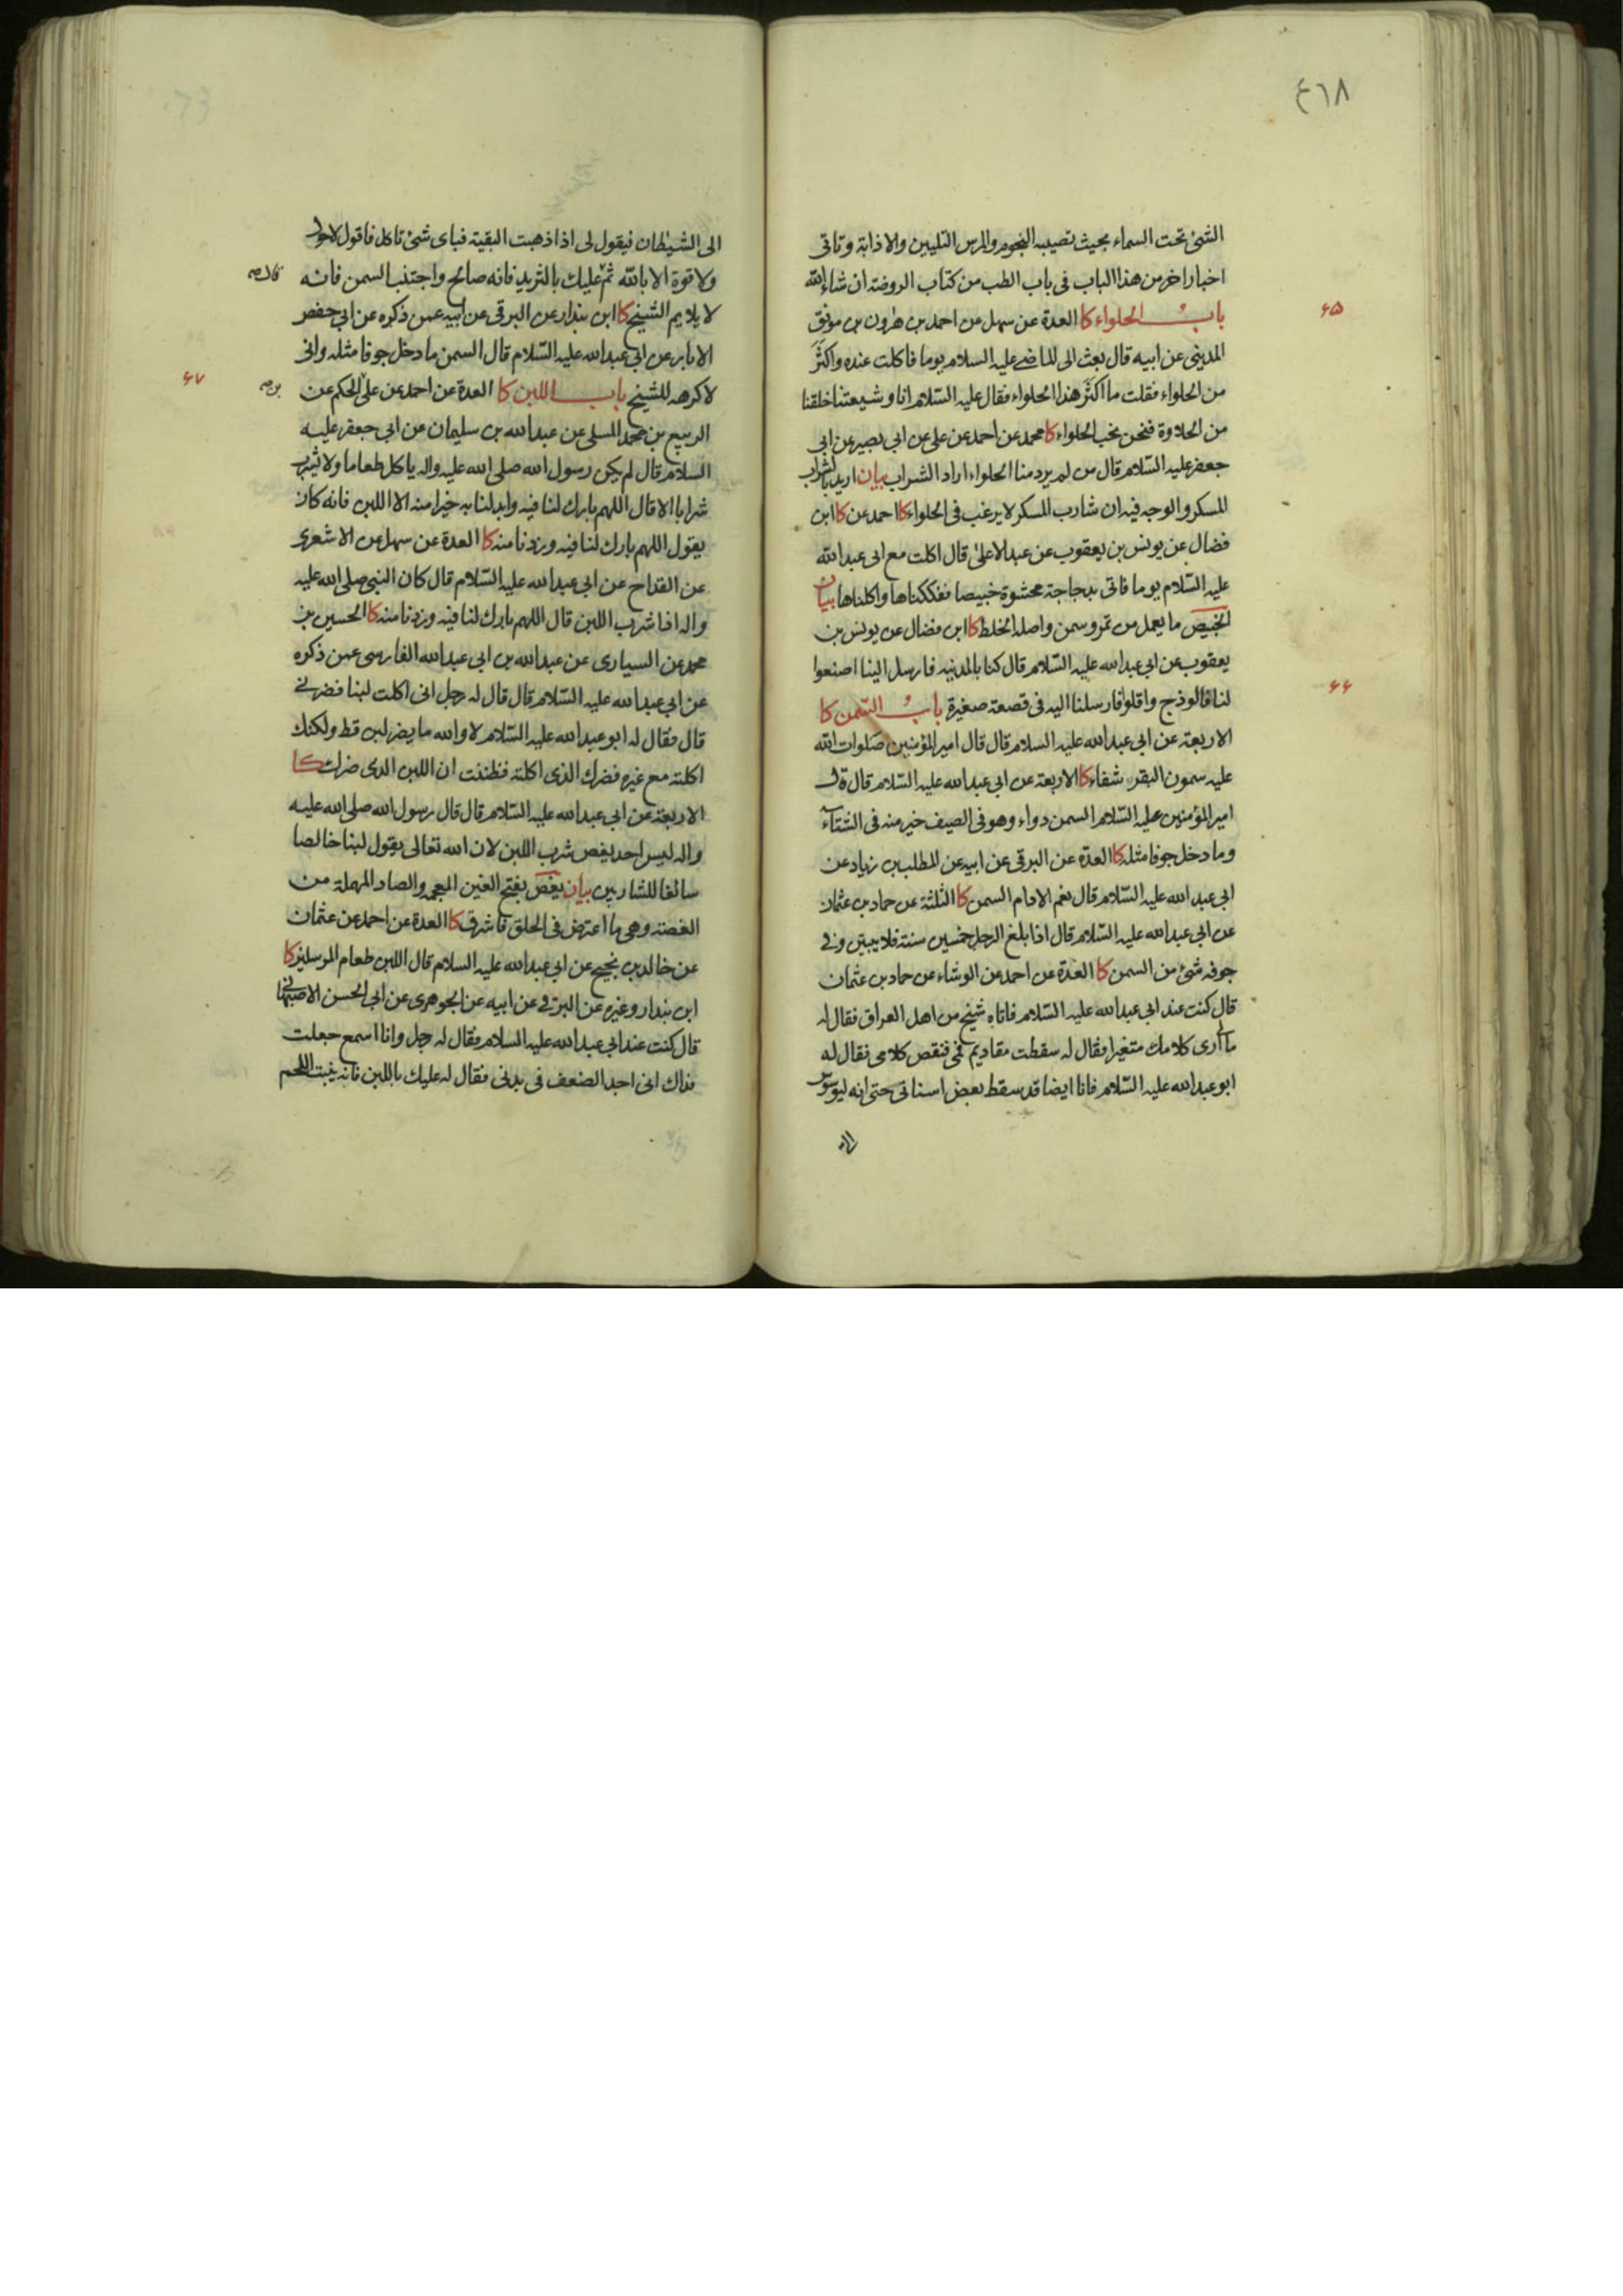 ٤٦٨
الشئ تحت السماء بحيث تصيبه النجوم والمرس التليين والاذابة وتاتى
اخبار اخر من هذا الباب فى باب الطب من كتاب الروضة ان شاء الله
باب الحلواء كا العدة عن سهل عن احمد بن هرون بن موفق
۶۵
المدينى عن ابيه قال بعث الى الماضى عليه السلام يوما فاكلت عنده واكثر
من الحلواء فقلت ما اكثر هذا الحلواء فقال عليه السلام انا وشيعتنا خلقنا
من الحلاوة فنحن نحب الحلواء كا محمد عن احمد عن على عن ابى بصير عن ابى
جعفر عليه السلام قال من لم يرد منا الحلواء اراد الشراب بيان اريد بالشراب
المسكر والوجه فيه ان شارب المسكر لا يرغب فى الحلواء كا احمد عن كا ابن
فضال عن يونس بن يعقوب عن عبد الاعلى قال اكلت مع ابى عبد الله
عليه السلام يوما فاتى بدجاجة محشوة خبيصا ففككناها واكلناها بيان
الخبيص ما يعمل من تمر وسمن واصله الخلط كا ابن فضال عن يونس بن
يعقوب عن ابى عبد الله عليه السلام قال كنا بالمدينه فارسل الينا اصنعوا
لنا فالوذج واقلوا فارسلنا اليه فى قصعة صغيرة باب السمن كا
۶۶
الاربعة عن ابى عبد الله عليه السلام قال قال امير المؤمنين صلوات الله
عليه سمون البقر شفاء كا الاربعة عن ابى عبد الله عليه السلام قال قال
امير المؤمنين عليه السلام السمن دواء وهو فى الصيف خير منه فى الشتاء
وما دخل جوفا مثله كا العدة عن البرقى عن ابيه عن المطلب بن زياد عن
ابى عبد الله عليه السلام قال نعم الادام السمن كا الثلثة عن حماد بن عثمان
عن ابى عبد الله عليه السلام قال اذا بلغ الرجل خمسين سنة فلا يبيتن وفى
جوفه شئ من السمن كا العدة عن احمد عن الوشاء عن حماد بن عثمان
قال كنت عند ابى عبد الله عليه السلام فاتاه شيخ من اهل العراق فقال له
ما ارى كلامك متغيرا فقال له سقطت مقاديم فمى فنقص كلامى فقال له
ابو عبد الله عليه السلام فانا ايضا قد سقط بعض اسنانى حتى انه ليوسوس
الى
الى الشيطان فيقول لى اذا ذهبت البقية فباى شئ تاكل فاقول لا حول
ولا قوة الا بالله ثم عليك بالثريد فانه صالح واجتنب السمن فانه
لا يلايم الشيخ كا ابن بندار عن البرقى عن ابيه عمن ذكره عن ابى حفص
الابار عن ابى عبد الله عليه السلام قال السمن ما دخل جوفا مثله وانى
لاكرهه للشيخ باب اللبن كا العدة عن احمد عن على الحكم عن
۶۷
الربيع بن محمد المسلى عن عبد الله بن سليمان عن ابى جعفر عليه
السلام قال لم يكن رسول الله صلى الله عليه واله ياكل طعاما ولا يشرب
شرابا الا قال اللهم بارك لنا فيه وابدلنا به خيرا منه الا اللبن فانه كان
يقول اللهم بارك لنا فيه وزدنا منه كا العدة عن سهل عن الاشعرى
عن القداح عن ابى عبد الله عليه السلام قال كان النبى صلى الله عليه
واله اذا شرب اللبن قال اللهم بارك لنا فيه وزدنا منه كا الحسين بن
محمد عن السيارى عن عبد الله بن ابى عبد الله الفارسى عمن ذكره
عن ابى عبد الله عليه السلام قال قال له رجل انى اكلت لبنا فضرنى
قال فقال له ابو عبد الله عليه السلام لا والله ما يضر لبن قط ولكنك
اكلته مع غيره فضرك الذى اكلته فظننت ان اللبن الذى ضرك كا
الاربعة عن ابى عبد الله عليه السلام قال قال رسول الله صلى الله عليه
واله ليس احد يغص شرب اللبن لان الله تعالى يقول لبنا خالصا
سائغا للشاربين بيان يغص بفتح الغين المعجمه والصاد المهملة من
الغصة وهى ما اعترض فى الحلق فاشرق كا العدة عن احمد عن عثمان
عن خالد بن نجيح عن ابى عبد الله عليه السلام قال اللبن طعام المرسلين كا
ابن بندار وغيره عن البرقى عن ابيه عن الجوهرى عن ابى الحسن الاصبهانى
قال كنت عند ابى عبد الله عليه السلام فقال له رجل وانا اسمع جعلت
فداك انى اجد الضعف فى بدنى فقال له عليك باللبن فانه ينبت اللحم